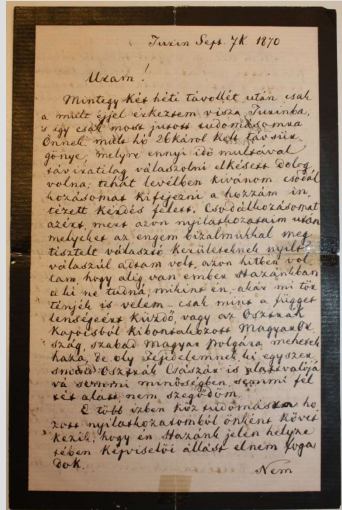 Turin Sept. 7k 1870
Uram!
Mintegy két héti távollét után csak
a mult éjjel érkeztem vissza Turinba,
s így csak most jutott tudomásomra
Önnek mult hó 26káról kelt távsür
gönye, melyre ennyi idő multával
táviratilag válaszolni elkésett dolog
volna; tehát levélben kivánom csodál
kozásomat kifejezni a hozzám in
tézett kérdés felett. Csodálkozásomat
azért, mert azon nyilatkozataim után
melyeket az engem bizalmukkal meg
tisztelt választó kerületeknek nyilt
válaszúl adtam volt, azon hitben vol
tam hogy alig van ember Hazánkban
a ki ne tudná, miként én, akár mi tör
ténjék is velem – csak mint a függet
lenségeért küzdő, vagy az Osztrák
kapocsból kibontakozott Magyar Or
szág, szabad Magyar polgára mehetek
haza, de oly fejedelemnek ki egyszer
smind Osztrák Császár is alattvalója
vá semmi minőségben semmi fel
tét alatt nem szegődöm.
E több ízben köztudomásra ho
zott nyilatkozatomból önként követ
kezik, hogy én Hazánk jelen helyze
tében képviselői állást el nem foga
dok.
Nem